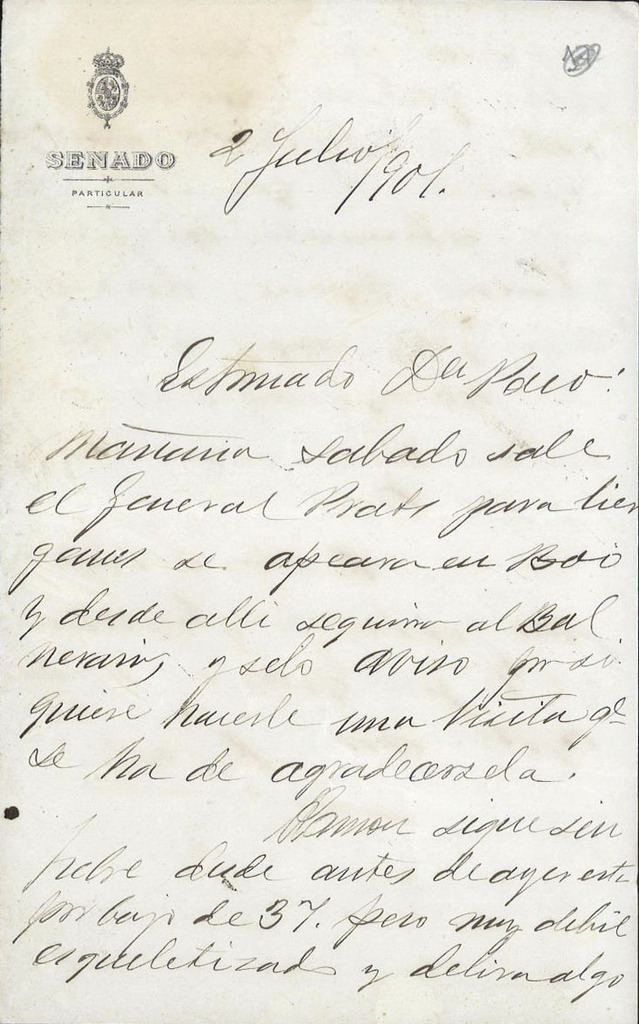 SENADO
PARTICULAR
2 Julio/901.
Estimado Dn Paco:
Mañana sabado sale
el General Prats para Lier
ganes se apeara en Boó
y desde alli seguira al Bal
neario, y selo aviso por si
quiere hacerle una visita qe
se ha de agradecersela.
Ramon sigue sin
fiebre desde antes de ayer esta
por bajo de 37. pero muy debil
esqueletizado y delira algo